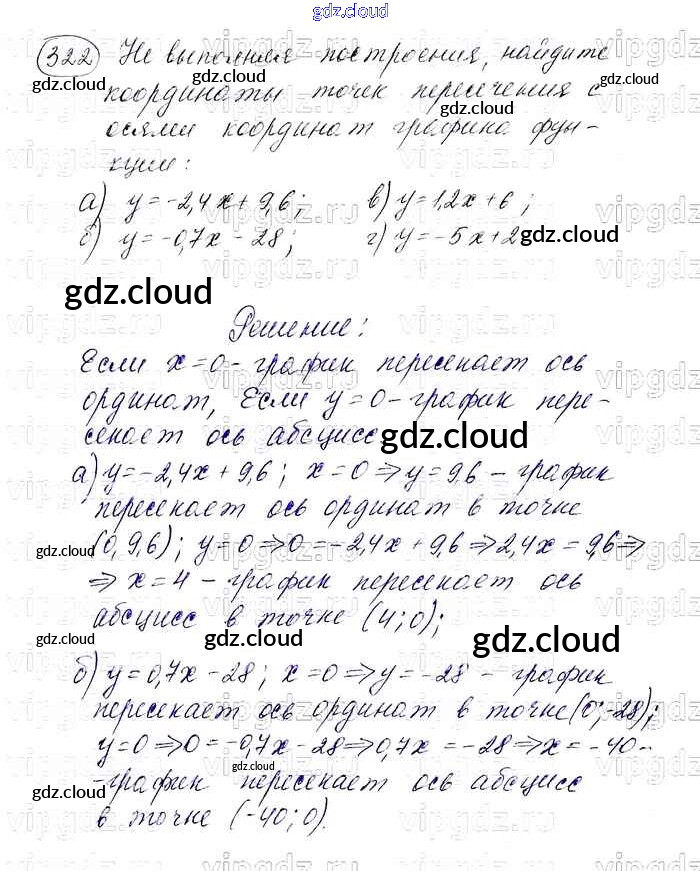 gdz.cloud
322 Не выполняя построения, найдите
координаты точек пересечения с
осями координат графика функ-
кции:
а) y=-2,4x+9,6; в) y=1,2x+6;
б) y=-0,7x-28; г) y=-5x+2
gdz.cloud
Решение:
Если x=0- график пересекает ось
ординат, Если y=0- график пере-
секает ось абсцисс
а) y=-2,4x+9,6; x=0⇒y=9,6 - график
пересекает ось ординат в точке
(0, 9,6); y=0⇒0=-2,4x+9,6⇒2,4x=9,6⇒
⇒x=4 - график пересекает ось
абсцисс в точке (4;0);
gdz.cloud
б) y=0,7x-28; x=0⇒y=-28 - график
пересекает ось ординат в точке (0;-28);
y=0⇒0=-0,7x-28⇒0,7x=-28⇒x=-40-
-график пересекает ось абсцисс
в точке (-40;0).